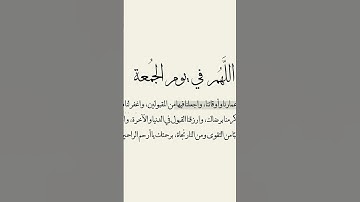 اللَّهُم في يوم الجُمعة
عمارنا وأوقاتنا، واجعلنا فيها من المقبولين، واغفر لنا
كرمنا برضاك، وارزقنا القبول في الدنيا والآخرة، و
من التقوى ومن النار نجاة، برحمتك يا أرحم الراحمين